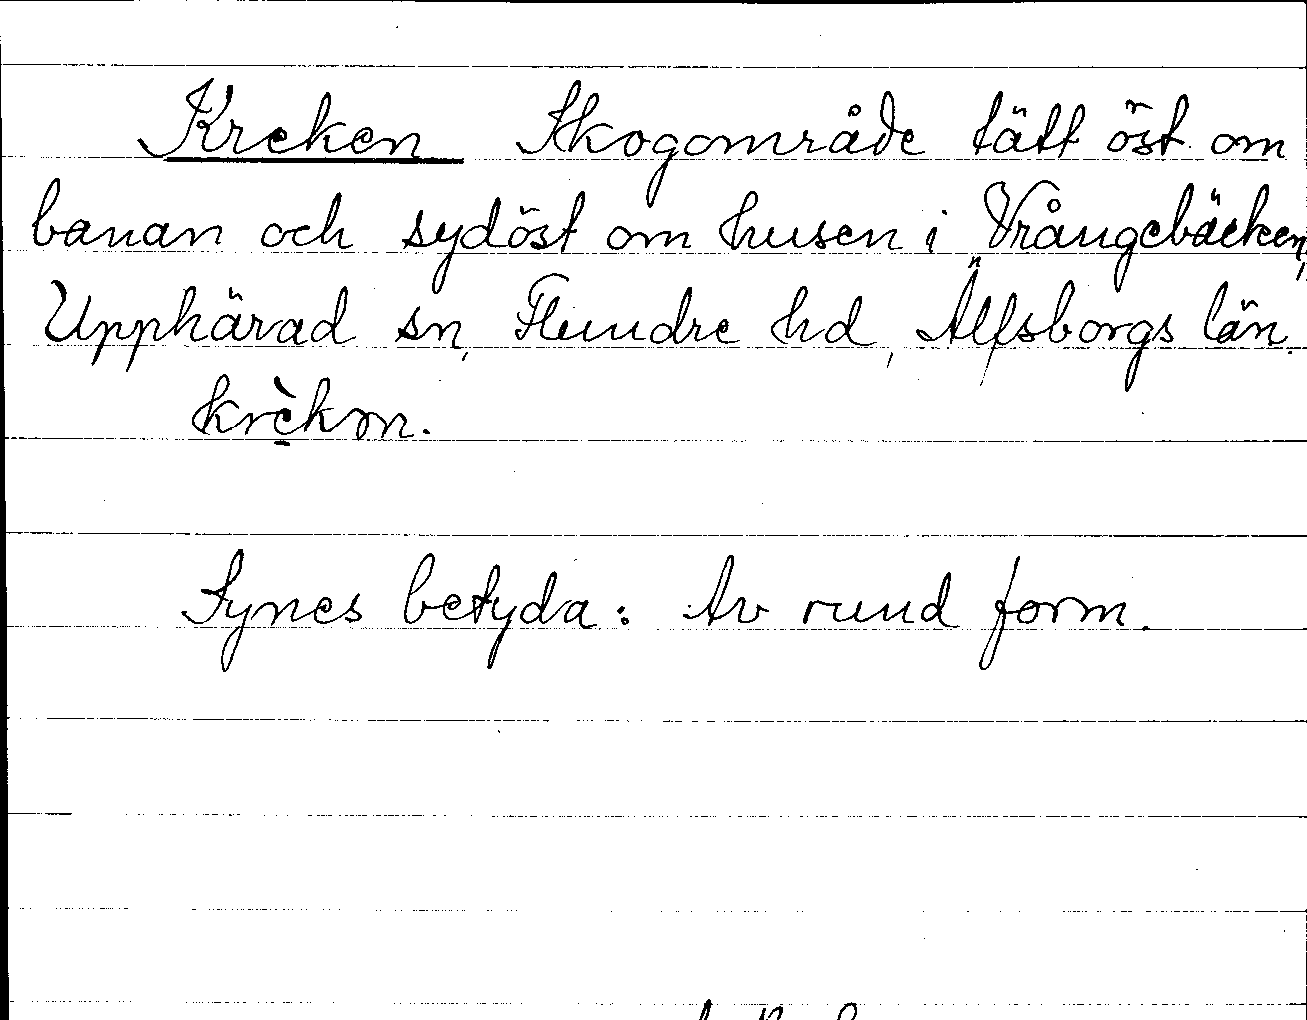 Kreken Skogområde tätt öst om
banan och sydöst om husen i Vrångebäcken,
Upphärad sn, Flundre hd, Älfsborgs län.
krè̜km.
Synes betyda: Av rund form.